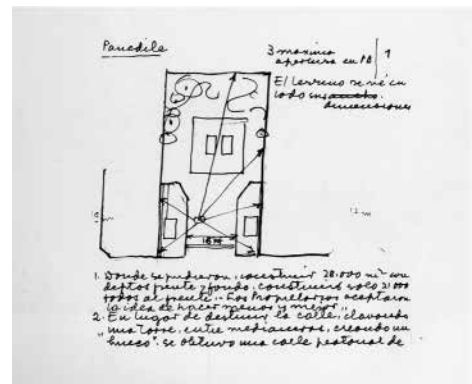 Panedile
3 maxima
apertura en PB
1
El terreno se vé en
todo sus ancho.
dimensiones
12 m
18 m
1. Donde se pudieron, construir 28.000 m² con
deptos frente y fondo, construirs solo 21000
todos al frente. Los Propietarios aceptaron
la idea de hacer menos y mejor"
2. En lugar de destruir la calle, clavando
"una torre, entre medianeras, creando un
hueco" se obtuvo una calle peatonal de